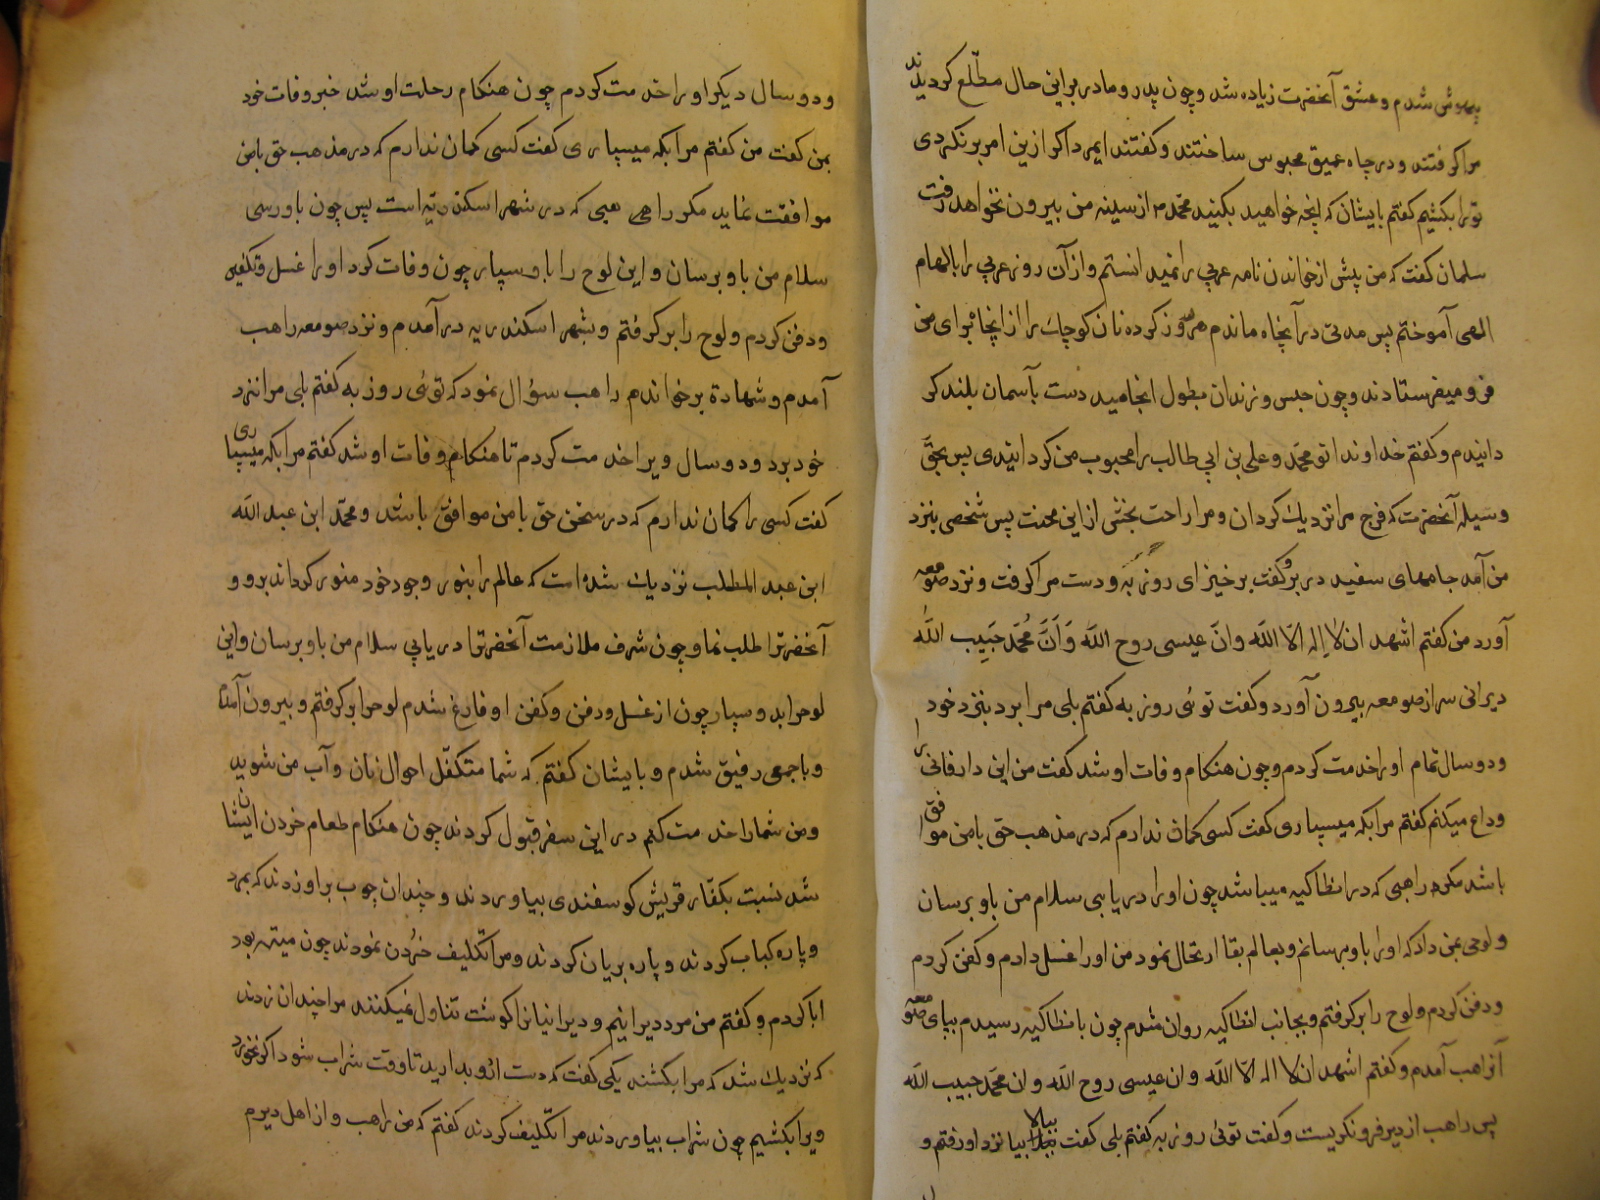 بیهوش شدم و عشق آنحضرت زیاده شد و چون پدر و مادر بر این حال مطّلع کردیدند
مرا کرفتند و در چاه عمیق محبوس ساختند و کفتند ایمرد اکر ازین امر برنکردی
ترا بکشیم کفتم بایشان که انچه خواهید بکنید محمّد م از سینه من بیرون نخواهد رفت
سلمان کفت که من پیش از خواندن نامه عربی را نمیدانستم و از آن روز عربی را بالهام
الهی آموختم پس مدتی در آنچاه ماندم هر روز کرده نان کوچک را از انجا برای من
فرو میفرستادند و چون حبس و زندان بطول انجامید دست بآسمان بلند کر
دانیدم و کفتم خداوندا تو محمّد و علی بن ابی طالب را محبوب من کردانیدی پس بحقّ
وسیله آنحضرت که فرج مرا نزدیک کردان و مرا راحت بخش از این محنت پس شخصی بنزد
من آمد جامهای سفید در بر و کفت برخیز ای روزبه و دست مرا کرفت و نزد صومعه
آورد من کفتم اشهد ان لا اله الّا اللّه وانّ عیسی روح اللّه وَاَنَّ مُحمّد حَبِیب اللّه
دیرانی سر از صومعه بیرون آورد و کفت توئی روزبه کفتم بلی مرا برد بنزد خود
و دو سال تمام او را خدمت کردم و چون هنکام وفات او شد کفت من این دار فانی را
وداع میکنم کفتم مرا بکه میسپاری کفت کسی کمان ندارم که در مذهب حق با من موافق
باشد مکر راهبی که در انطاکیه میباشد چون او را دریابی سلام من باو برسان
و لوحی بمن داد که او را باو برسانم و بعالم بقا ارتحال نمود من او را غسل دادم و کفن کردم
و دفن کردم و لوح را بر کرفتم و بجانب انطاکیه روان شدم چون بانطاکیه رسیدم بپای صومعه
آنراهب آمدم و کفتم اشهد ان لا اله الّا اللّه و ان عیسی روح اللّه و ان محمّد حبیب اللّه
پس راهب از دیر فرو نکریست و کفت توئی روزبه کفتم بلی کفت ببالا بیا نزد او رفتم و
و دو سال دیکر او را خدمت کردم چون هنکام رحلت او شد خبر وفات خود
بمن کفت من کفتم مرا بکه میسپاری کفت کسی کمان ندارم که در مذهب حق با من
موافقت نماید مکر راهبی که در شهر اسکندریّه است پس چون باو رسی
سلام من باو برسان و این لوح را باو سپار چون وفات کرد او را غسل و تکفین
و دفن کردم و لوح را بر کرفتم و بشهر اسکندریه در آمدم و نزد صومعه راهب
آمدم و شهادة بر خواندم راهب سؤال نمود که توئی روزبه کفتم بلی مرا نزد
خود برد و دو سال ویرا خدمت کردم تا هنکام وفات او شد کفتم مرا بکه میسپاری
کفت کسی را کمان ندارم که در سخن حق با من موافق باشد و محمّد ابن عبد اللّه
ابن عبد المطلب نزدیک شده است که عالم را بنور وجود خود منور کرداند برو و
آنحضرترا طلب نما و چون شرف ملازمت آنحضرترا دریابی سلام من باو برسان و این
لوحرا بدو سپار چون از غسل و دفن و کفن او فارغ شدم لوحرا بر کرفتم و بیرون آمدم
و با جمعی رفیق شدم و بایشان کفتم که شما متکفّل احوال نان و آب من شوید
و من شما را خدمت کنم در این سفر قبول کردند چون هنکام طعام خردن ایشان
شد نسبت بکفّار قریش کوسفندی بیاوردند و چندان چوب بر او زدند که بمرد
و پاره کباب کردند و پاره بریان کردند و مرا تکلیف خُردن نمودند چون میته بود
ابا کردم و کفتم من مرد دیرانیم و دیرانیان کوشت تناول نمیکنند مرا چندان زدند
که نزدیک شد که مرا بکشند یکی کفت که دست از و بدارید تا وقت شراب شود اکر نخورد
ویرا بکشیم چون شراب بیاوردند مرا تکلیف کردند کفتم که من راهب و از اهل دیرم